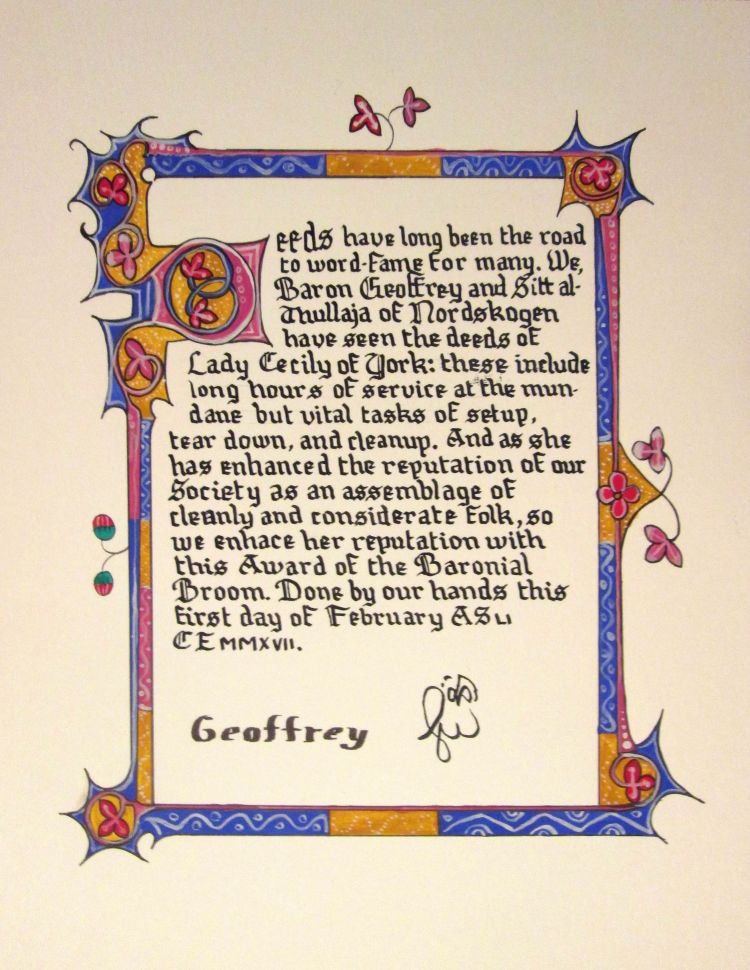 Deeds have long been the road
to word-fame for many. We,
Baron Geoffrey and Sitt al-
Thullaja of Nordskogen
have seen the deeds of
Lady Cecily of York: these include
long hours of service at the mun-
dane but vital tasks of setup,
tear down, and cleanup. And as she
has enhanced the reputation of our
Society as an assemblage of
cleanly and considerate folk, so
we enhace her reputation with
this Award of the Baronial
Broom. Done by our hands this
first day of February AS LI
CE MMXVII.
Geoffrey